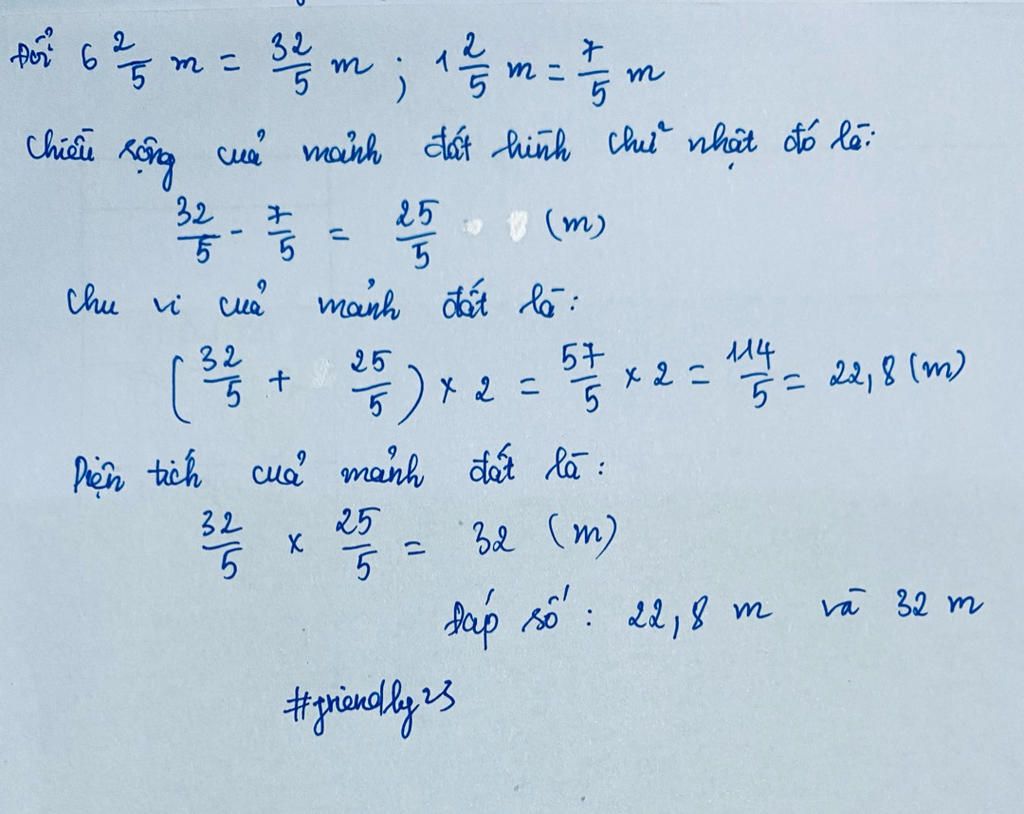 Đổi 6 2/5 m = 32/5 m ; 1 2/5 m = 7/5 m
Chiều rộng của mảnh đất hình chữ nhật đó là:
32/5 - 7/5 = 25/5 (m)
Chu vi của mảnh đất là:
(32/5 + 25/5) × 2 = 57/5 × 2 = 114/5 = 22,8 (m)
Diện tích của mảnh đất là:
32/5 × 25/5 = 32 (m)
Đáp số : 22,8 m và 32 m
#friendly23